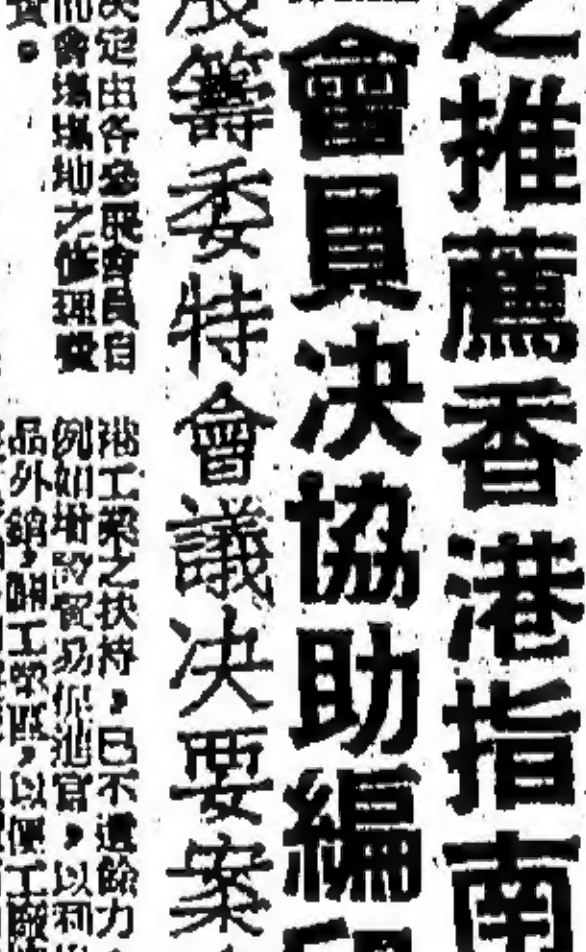 之推薦香港指南
會員決協助編印
展籌委特會議决要案
決定由各參展會員自
而會場場地之修理費
港工業之扶持，已不遺餘力，
例如增設貿易促進官，以利
品外銷，闢工業區，以便工廠